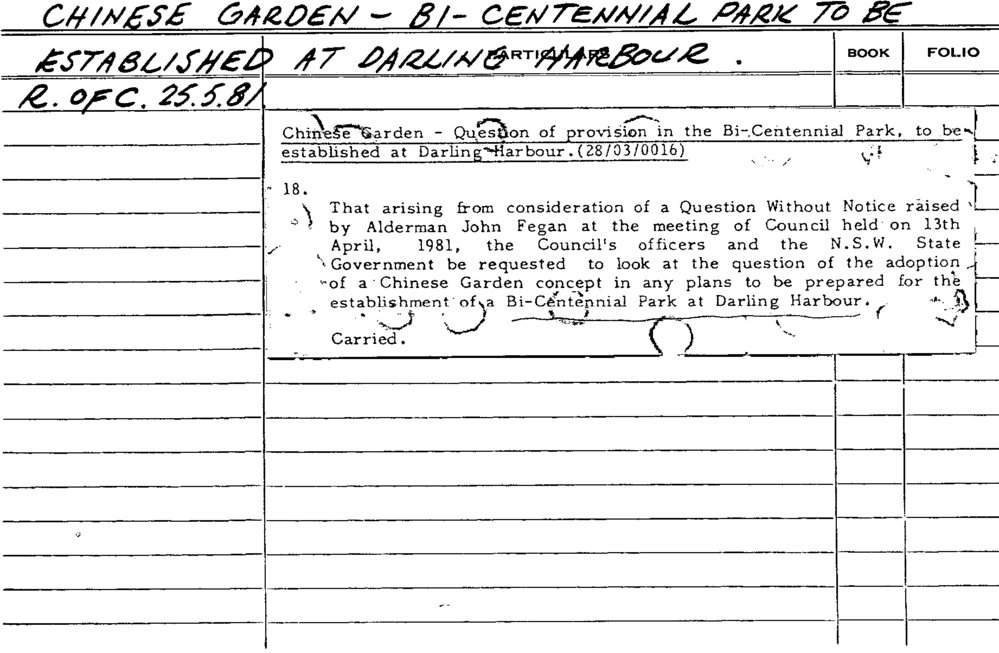 CHINESE GARDEN - BI-CENTENNIAL PARK TO BE
ESTABLISHED AT DARLING HARBOUR. PARTICULARS BOOK FOLIO
R. OF C. 25.5.81
Chinese Garden - Question of provision in the Bi-Centennial Park, to be
established at Darling Harbour.(28/03/0016)
18.
That arising from consideration of a Question Without Notice raised
by Alderman John Fegan at the meeting of Council held on 13th
April, 1981, the Council's officers and the N.S.W. State
Government be requested to look at the question of the adoption
of a Chinese Garden concept in any plans to be prepared for the
establishment of a Bi-Centennial Park at Darling Harbour.
Carried.